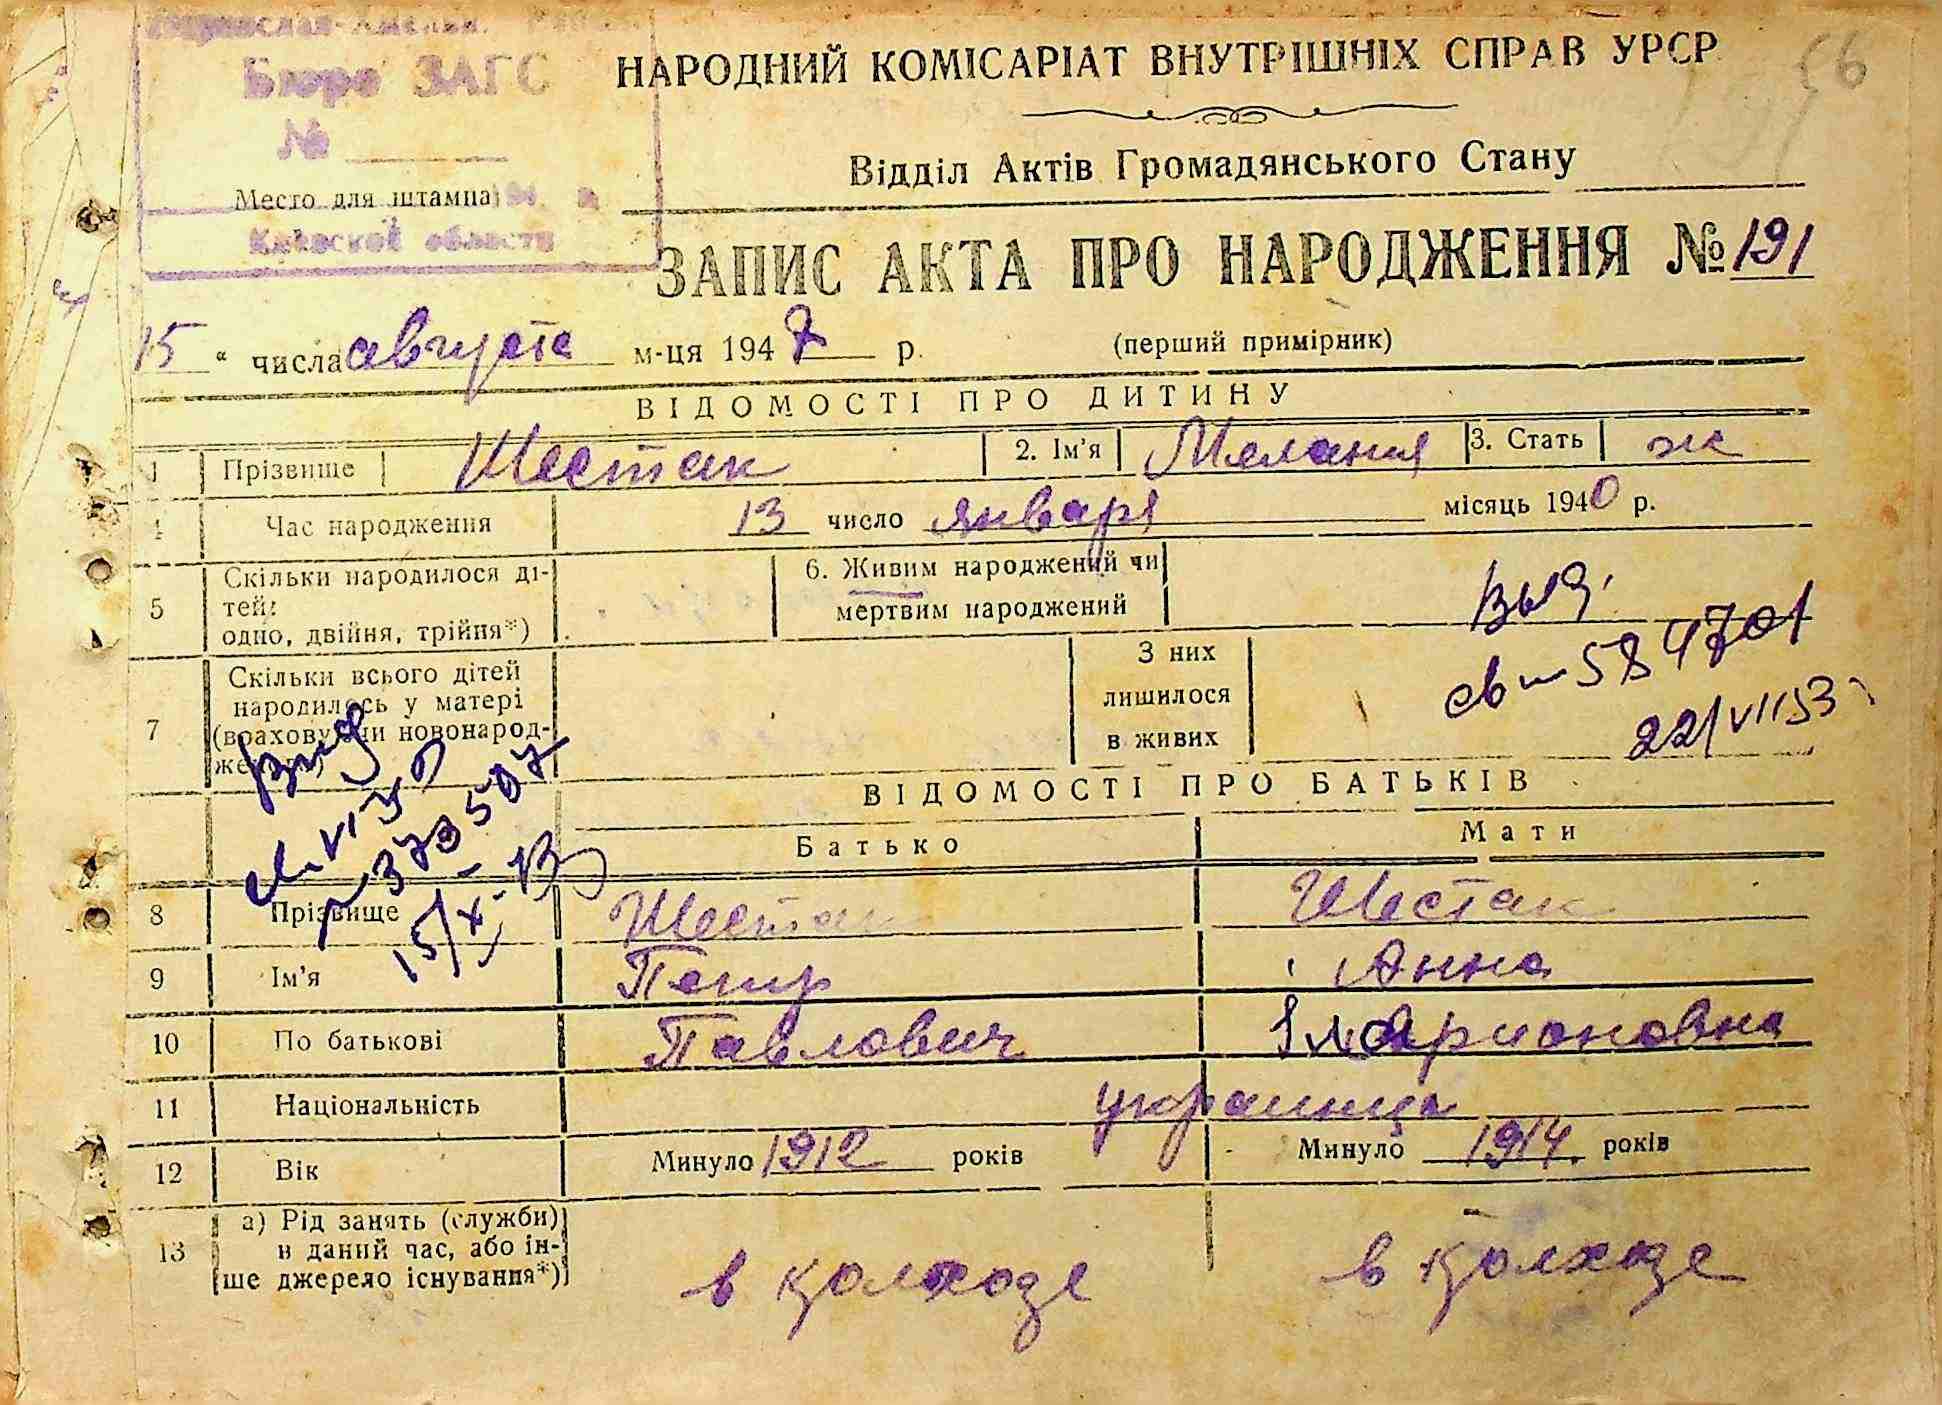 Бюро ЗАГС
№
Место для штампа
Киевской области
56
НАРОДНИЙ КОМІСАРІАТ ВНУТРІШНІХ СПРАВ УРСР
Відділ Актів Громадянського Стану
ЗАПИС АКТА ПРО НАРОДЖЕННЯ № 191
15 " числа августа м-ця 1947 р. (перший примірник)
ВІДОМОСТІ ПРО ДИТИНУ
1 Прізвище Шестак 2. Ім'я Мелания 3. Стать ж
4 Час народження 13 число января місяць 1940 р.
5 Скільки народилося ді-
тей:
одно, двійня, трійня*)
6. Живим народжений чи
мертвим народжений
7 Скільки всього дітей
народилось у матері
(враховуючи новонарод-
жених)
З них
лишилося
в живих
св № 584701
22/VII 53
ВІДОМОСТІ ПРО БАТЬКІВ
Батько Мати
№ 373507
8 Прізвище Шестак Шестак
9 Ім'я Петр Анна
10 По батькові Павлович Іларионовна
11 Національність украинцы
12 Вік Минуло 1912 років Минуло 1914 років
13 а) Рід занять (служби)
в даний час, або ін-
ше джерело існування*)
в колхозе в колхозе